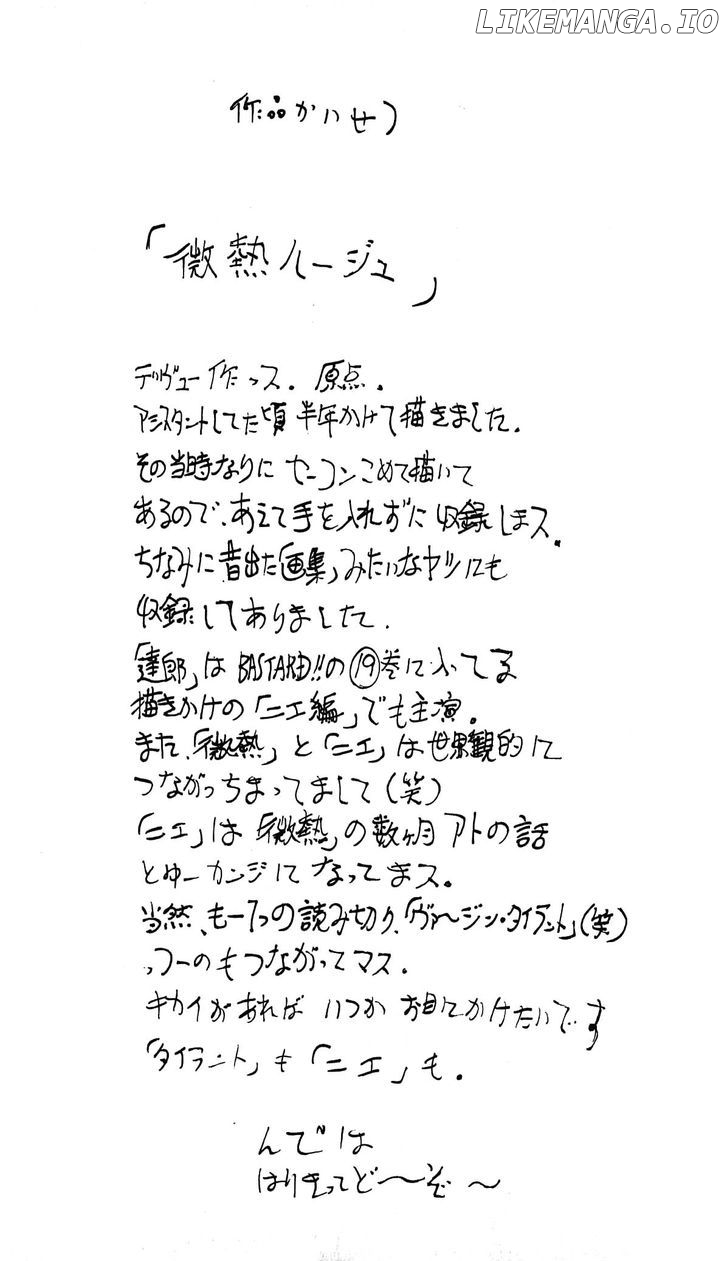 LIKEMANGA.IO
作品かいせつ
「微熱ルージュ」
デヴュー作っス. 原点.
アシスタントしてた頃 半年かけて描きました.
その当時なりに セーコンこめて描いて
あるので、あえて手を入れずに 収録しまス.
ちなみに昔出た「画集」みたいなヤツにも
収録してありました.
「達郎」は BASTARD!!の⑲巻に入ってる
描きかけの「ニエ編」でも主演.
また、「微熱」と「ニエ」は世界観的に
つながっちまってまして(笑)
「ニエ」は「微熱」の数ヶ月アトの話
とゆーカンジになってまス。
当然、もー1つの読み切り、「ヴァージン・タイラント」(笑)
っつーのもつながってマス.
キカイがあれば いつか お目にかけたいです
「タイラント」も「ニエ」も.
んでは
はりきってど〜ぞ〜